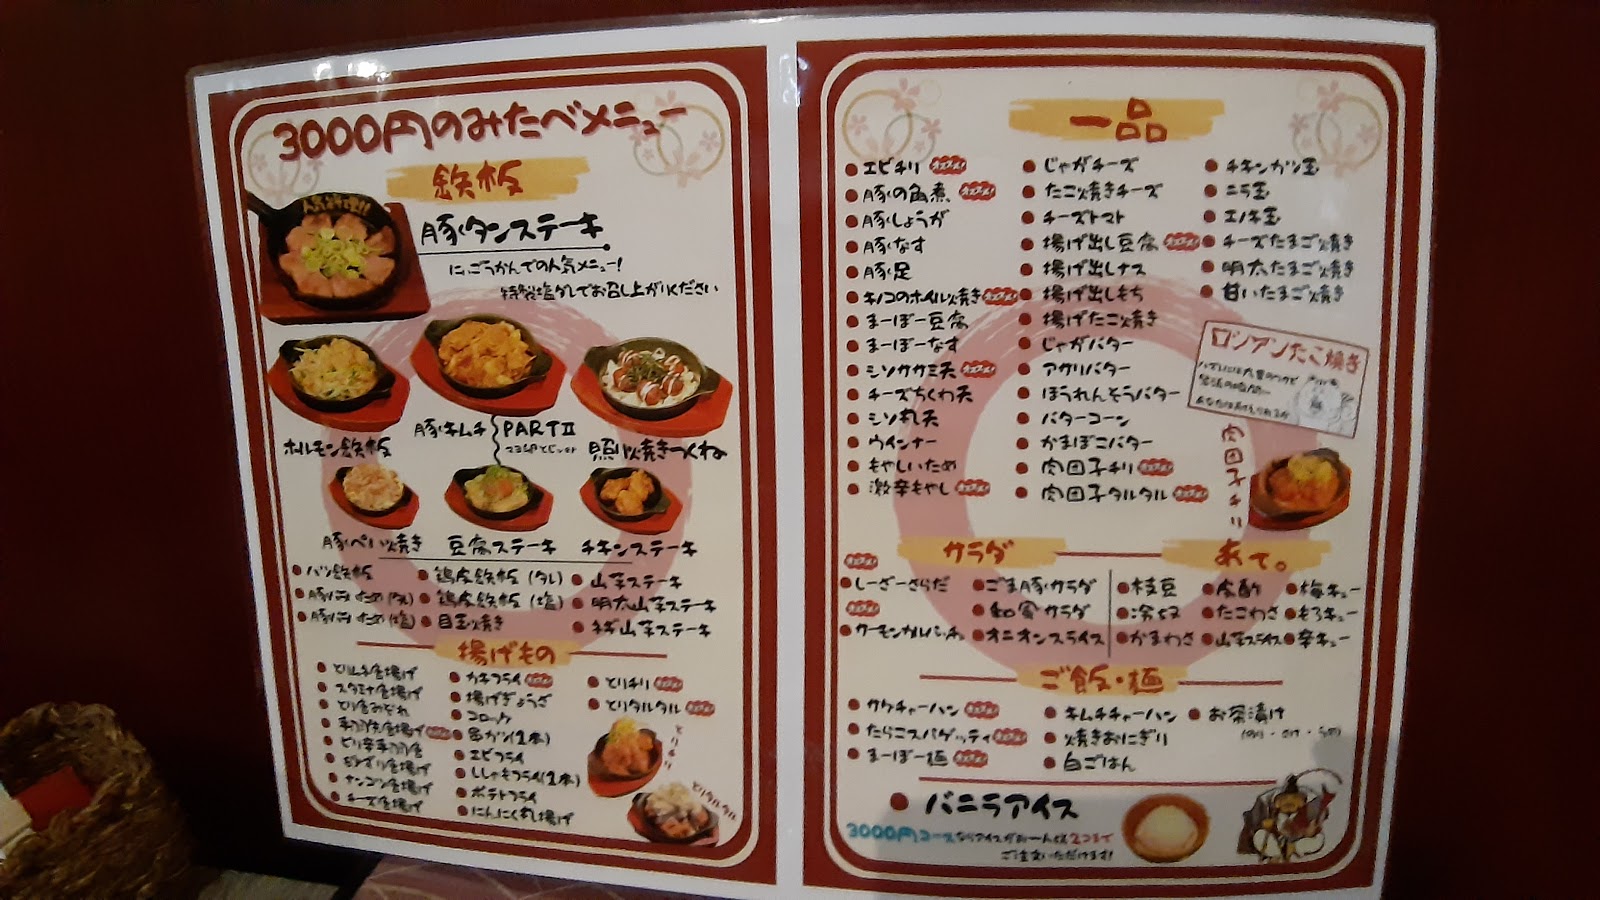 3000円のみたべメニュー
鉄板
人気料理!!
豚タンステーキ
にごうかんでの人気メニュー!
特製塩ダレでお召し上がりください
ホルモン鉄板
豚キムチ
PARTⅡ
照り焼きつくね
豚ペい焼き
豆腐ステーキ
チキンステーキ
バツ鉄板
豚バラいため(タレ)
豚バラいため(塩)
鶏皮鉄板(タレ)
鶏皮鉄板(塩)
目玉焼き
山芋ステーキ
明太山芋ステーキ
ネギ山芋ステーキ
揚げもの
とりムネ唐揚げ
スタミナ唐揚げ
とり唐みぞれ
手羽先唐揚げ
ピリ辛手羽唐
ナンコツ唐揚げ
チーズ唐揚げ
カキフライ オススメ!
揚げぎょうざ
コロッケ
串カツ(1本)
エビフライ
ししゃもフライ(1本)
ポテトフライ
にんにく丸揚げ
とりチリ オススメ!
とりタルタル オススメ!
とりチリ
とりタルタル
一品
エビチリ オススメ!
豚の角煮 オススメ!
豚しょうが
豚なす
豚足
キノコのホイル焼き オススメ!
まーぼー豆腐
まーぼーなす
シソササミ天 オススメ!
チーズちくわ天
シソ丸天
ウインナー
もやしいため
激辛もやし オススメ!
じゃがチーズ
たこ焼きチーズ
チーズトマト
揚げ出し豆腐 オススメ!
揚げ出しナス
揚げ出しもち
揚げたこ焼き
じゃがバター
アサリバター
ほうれんそうバター
バターコーン
かまぼこバター
肉団子チリ オススメ!
肉団子タルタル オススメ!
チキンカツ玉
ニラ玉
エノキ玉
チーズたまご焼き
明太たまご焼き
甘いたまご焼き
ロシアンたこ焼き
肉団子チリ
サラダ
オススメ!
しーざーさらだ
オススメ!
サーモンカルパッチョ
ごま豚サラダ
和風サラダ
オニオンスライス
あて。
枝豆
冷奴
かまわさ
皮酢
たこわさ
山芋スライス
梅キュー
もろキュー
辛キュー
ご飯・麺
サケチャーハン オススメ!
たらこスパゲッティ オススメ!
まーぼー麺 オススメ!
キムチチャーハン
焼きおにぎり
白ごはん
お茶漬け
バニラアイス
3000円コースならアイスがお一人様2つまで
ご注文いただけます!